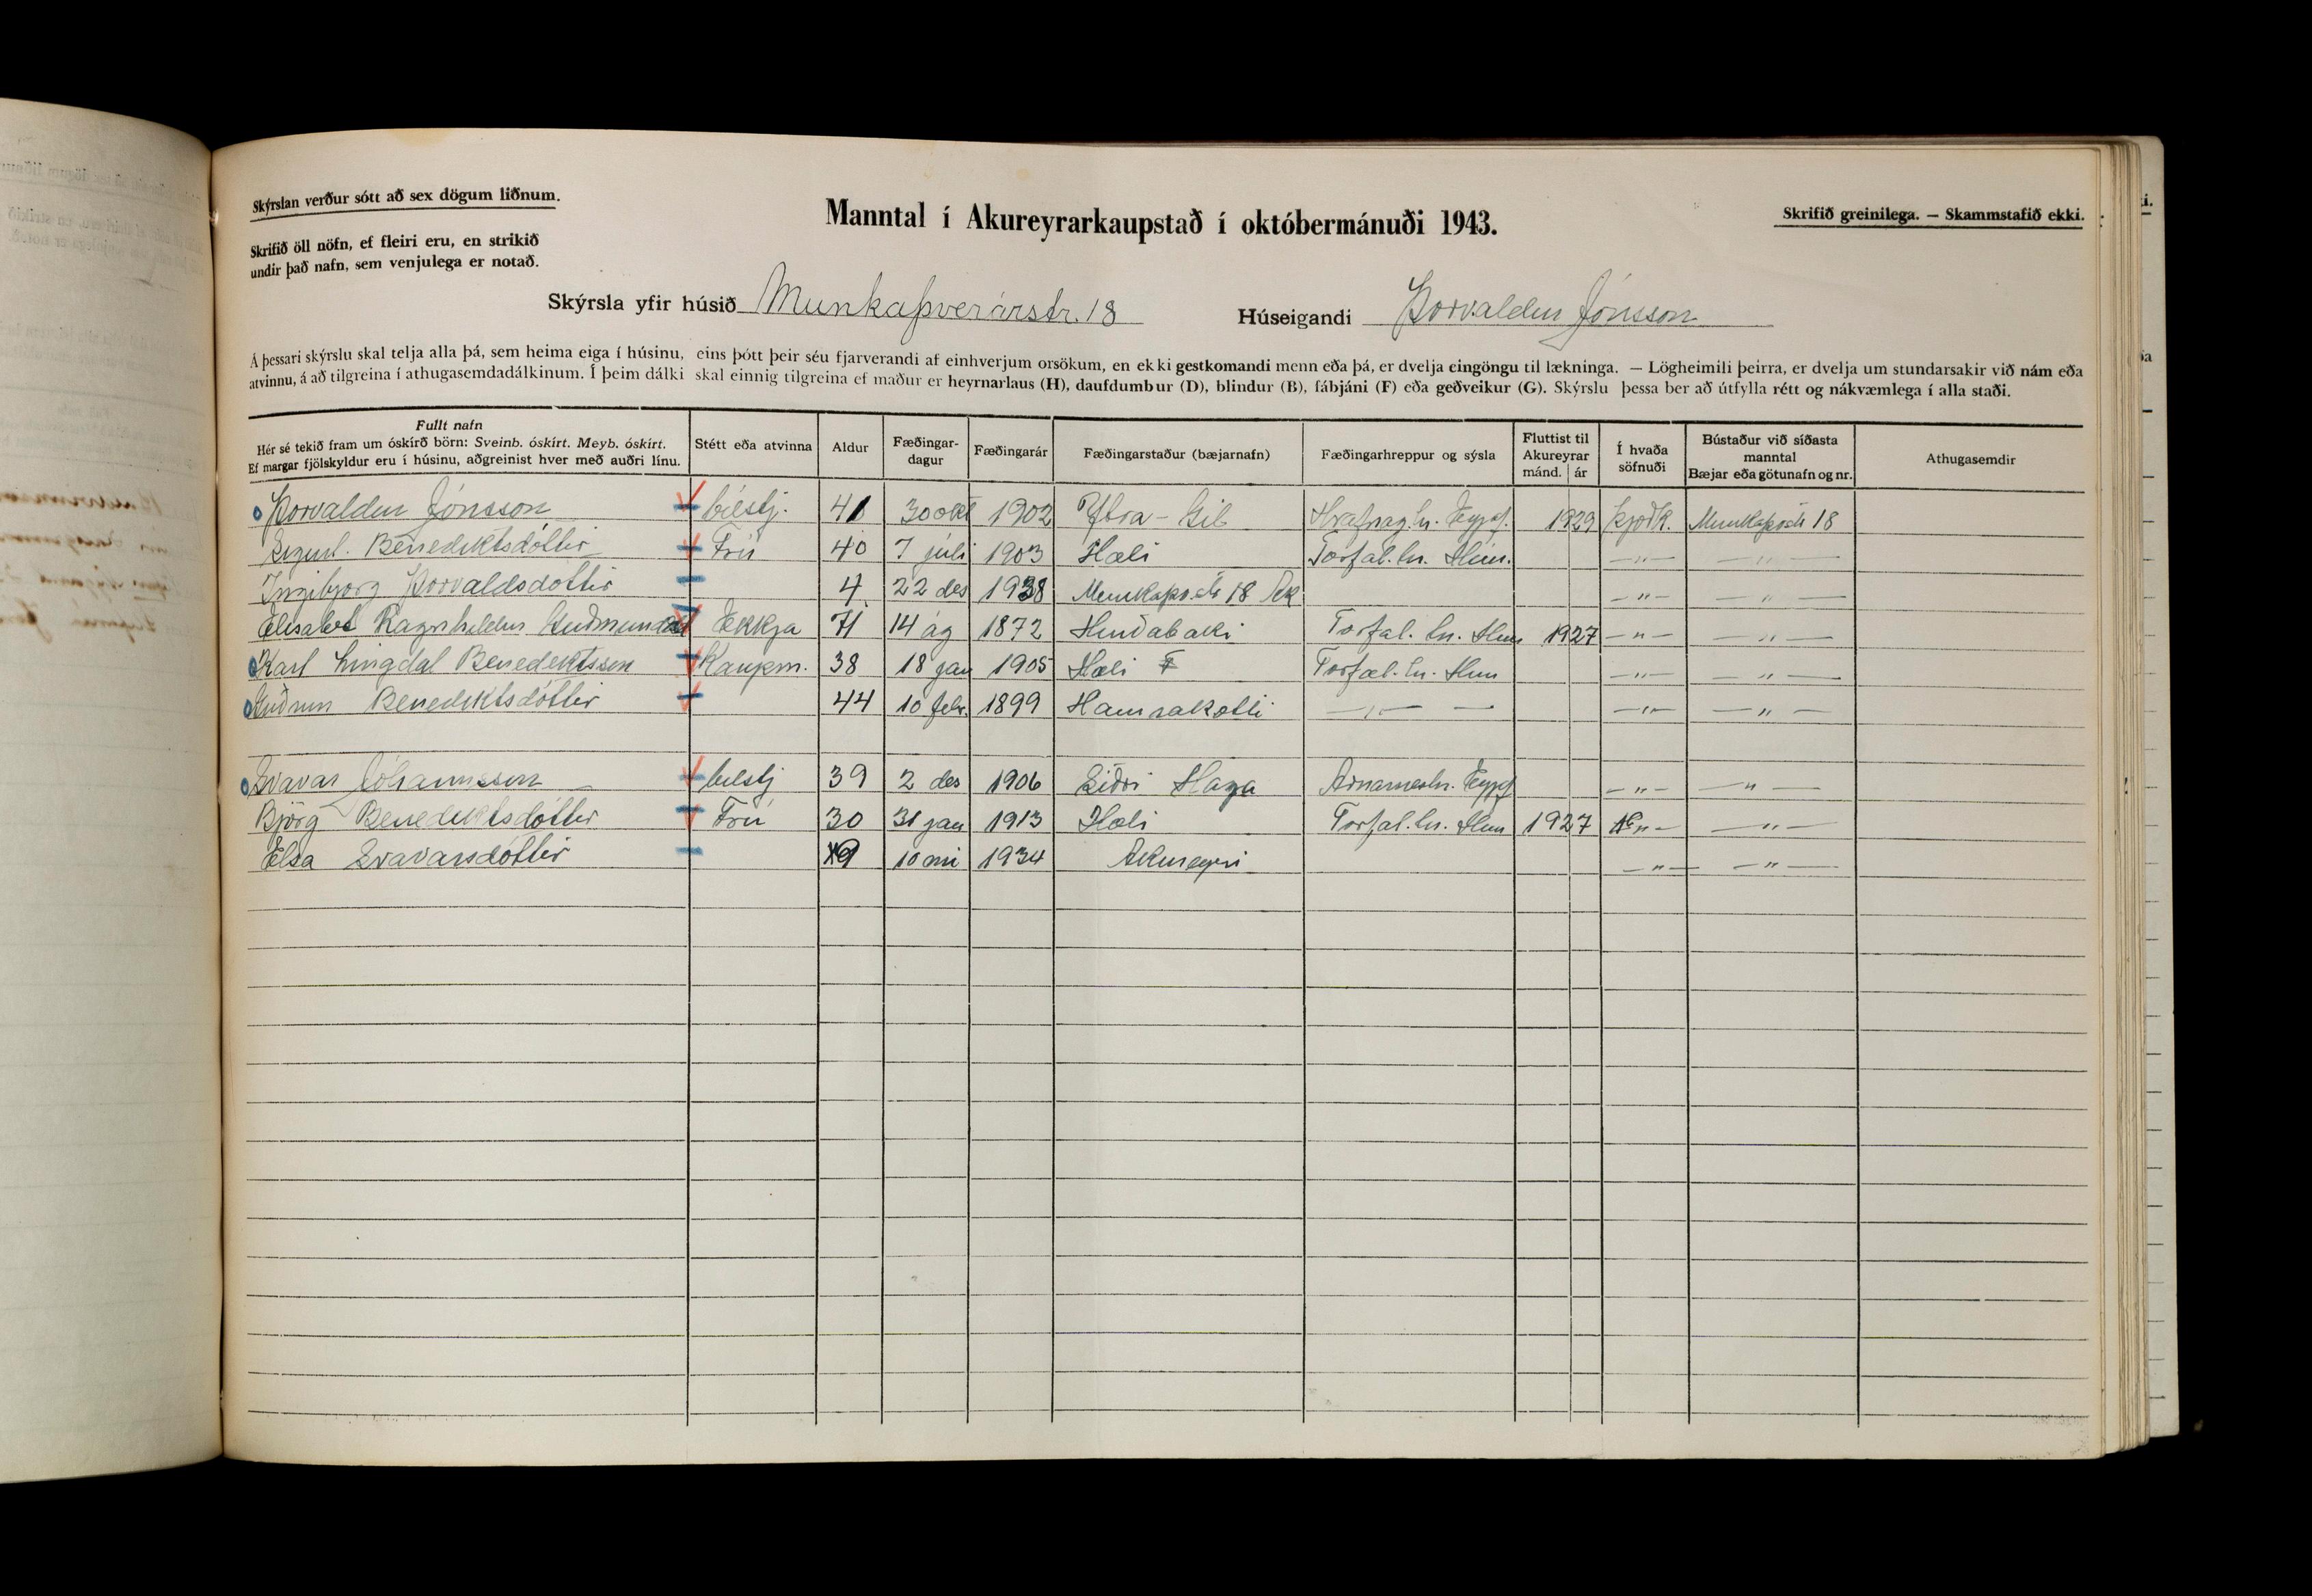 Skýrslan verður sótt að sex dögum liðnum.
Skrifið öll nöfn, ef fleiri eru, en strikið
undir það nafn, sem venjulega er notað.
Manntal í Akureyrarkaupstað í októbermánuði 1943.
Skrifið greinilega. — Skammstafið ekki.
Skýrsla yfir húsið Munkaþverárstr. 18 Húseigandi Þorvaldur Jónsson
Á þessari skýrslu skal telja alla þá, sem heima eiga í húsinu, eins þótt þeir séu fjarverandi af einhverjum orsökum, en ekki gestkomandi menn eða þá, er dvelja eingöngu til lækninga. — Lögheimili þeirra, er dvelja um stundarsakir við nám eða
atvinnu, á að tilgreina í athugasemdadálkinum. Í þeim dálki skal einnig tilgreina ef maður er heyrnarlaus (H), daufdumbur (D), blindur (B), fábjáni (F) eða geðveikur (G). Skýrslu þessa ber að útfylla rétt og nákvæmlega í alla staði.
Fullt nafn
Hér sé tekið fram um óskírð börn: Sveinb. óskírt. Meyb. óskírt.
Ef margar fjölskyldur eru í húsinu, aðgreinist hver með auðri línu.
Stétt eða atvinna
Aldur
Fæðingar-
dagur
Fæðingarár
Fæðingarstaður (bæjarnafn)
Fæðingarhreppur og sýsla
Fluttist til
Akureyrar
mánd. ár
Í hvaða
söfnuði
Bústaður við síðasta
manntal
Bæjar eða götunafn og nr.
Athugasemdir
Þorvaldur Jónsson bílstj. 41 30 okt 1902 Ytra-Gil Hrafnag.hr. Eyjaf. 1929 Þjóðk. 18
Benediktsdóttir Frú 40 7 júlí 1903 Hæli Torfal.hr. Hún. —"— —"—
Ingibjörg Þorvaldsdóttir 4 22 des 1938 18 Ak —"— —"—
Elísabet Ragnhildur Ekkja 71 14 ág 1872 Torfal. hr. Hún 1927 —"— —"—
Karl Lingdal Benediktsson Kaupm. 38 18 jan 1905 Hæli Torfal. hr. Hún —"— —"—
Guðrún Benediktsdóttir 44 10 febr 1899 Hamrakoti —"— —"— —"—
Svavar Jóhannsson bílstj 39 2 des 1906 Ziðri Haga Arnarneshr. Eyjaf —"— —"—
Björg Benediktsdóttir Frú 30 31 jan 1913 Hæli Torfal. hr. Hún 1927 —"— —"—
Elsa Svavarsdóttir 9 10 1934 Akureyri —"— —"—